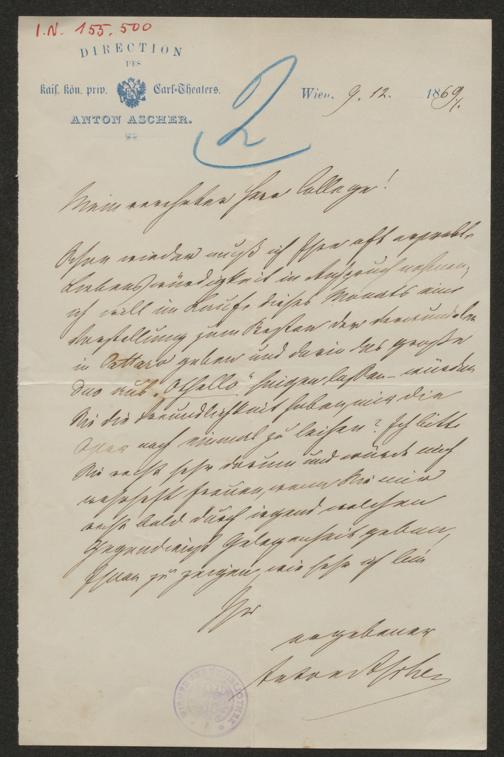 I.N. 155.500
DIRECTION
DES
kais. kön. priv. Carl-Theaters.
ANTON ASCHER.
2
Wien, 9. 12. 1869.
Mein verehrter Herr College!
Schon wieder muß ich Ihre oft erprobte
Liebenswürdigkeit in Anspruch nehmen,
ich will im Laufe dieses Monats eine
Vorstellung zum Besten der Verwundeten
in Cattaro geben und darin das große
Duo aus „Othello“ singen lassen – würden
Sie die Freundlichkeit haben, mir die
noch einmal zu leihen? Ich bitte
Sie recht sehr darum und würde mich
wahrhaft freuen, wenn Sie mir
recht bald durch irgend welchen
Gegendienst Gelegenheit geben,
Ihnen zu zeigen, wie sehr ich bin
Ihr
ergebener
Anton Ascher